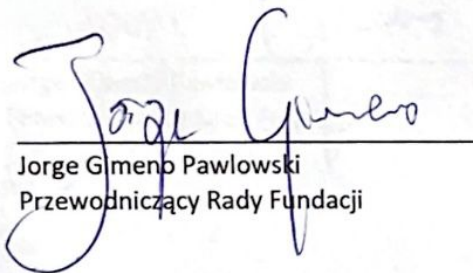 Jorge Gimeno
Jorge Gimeno Pawlowski
Przewodniczący Rady Fundacji